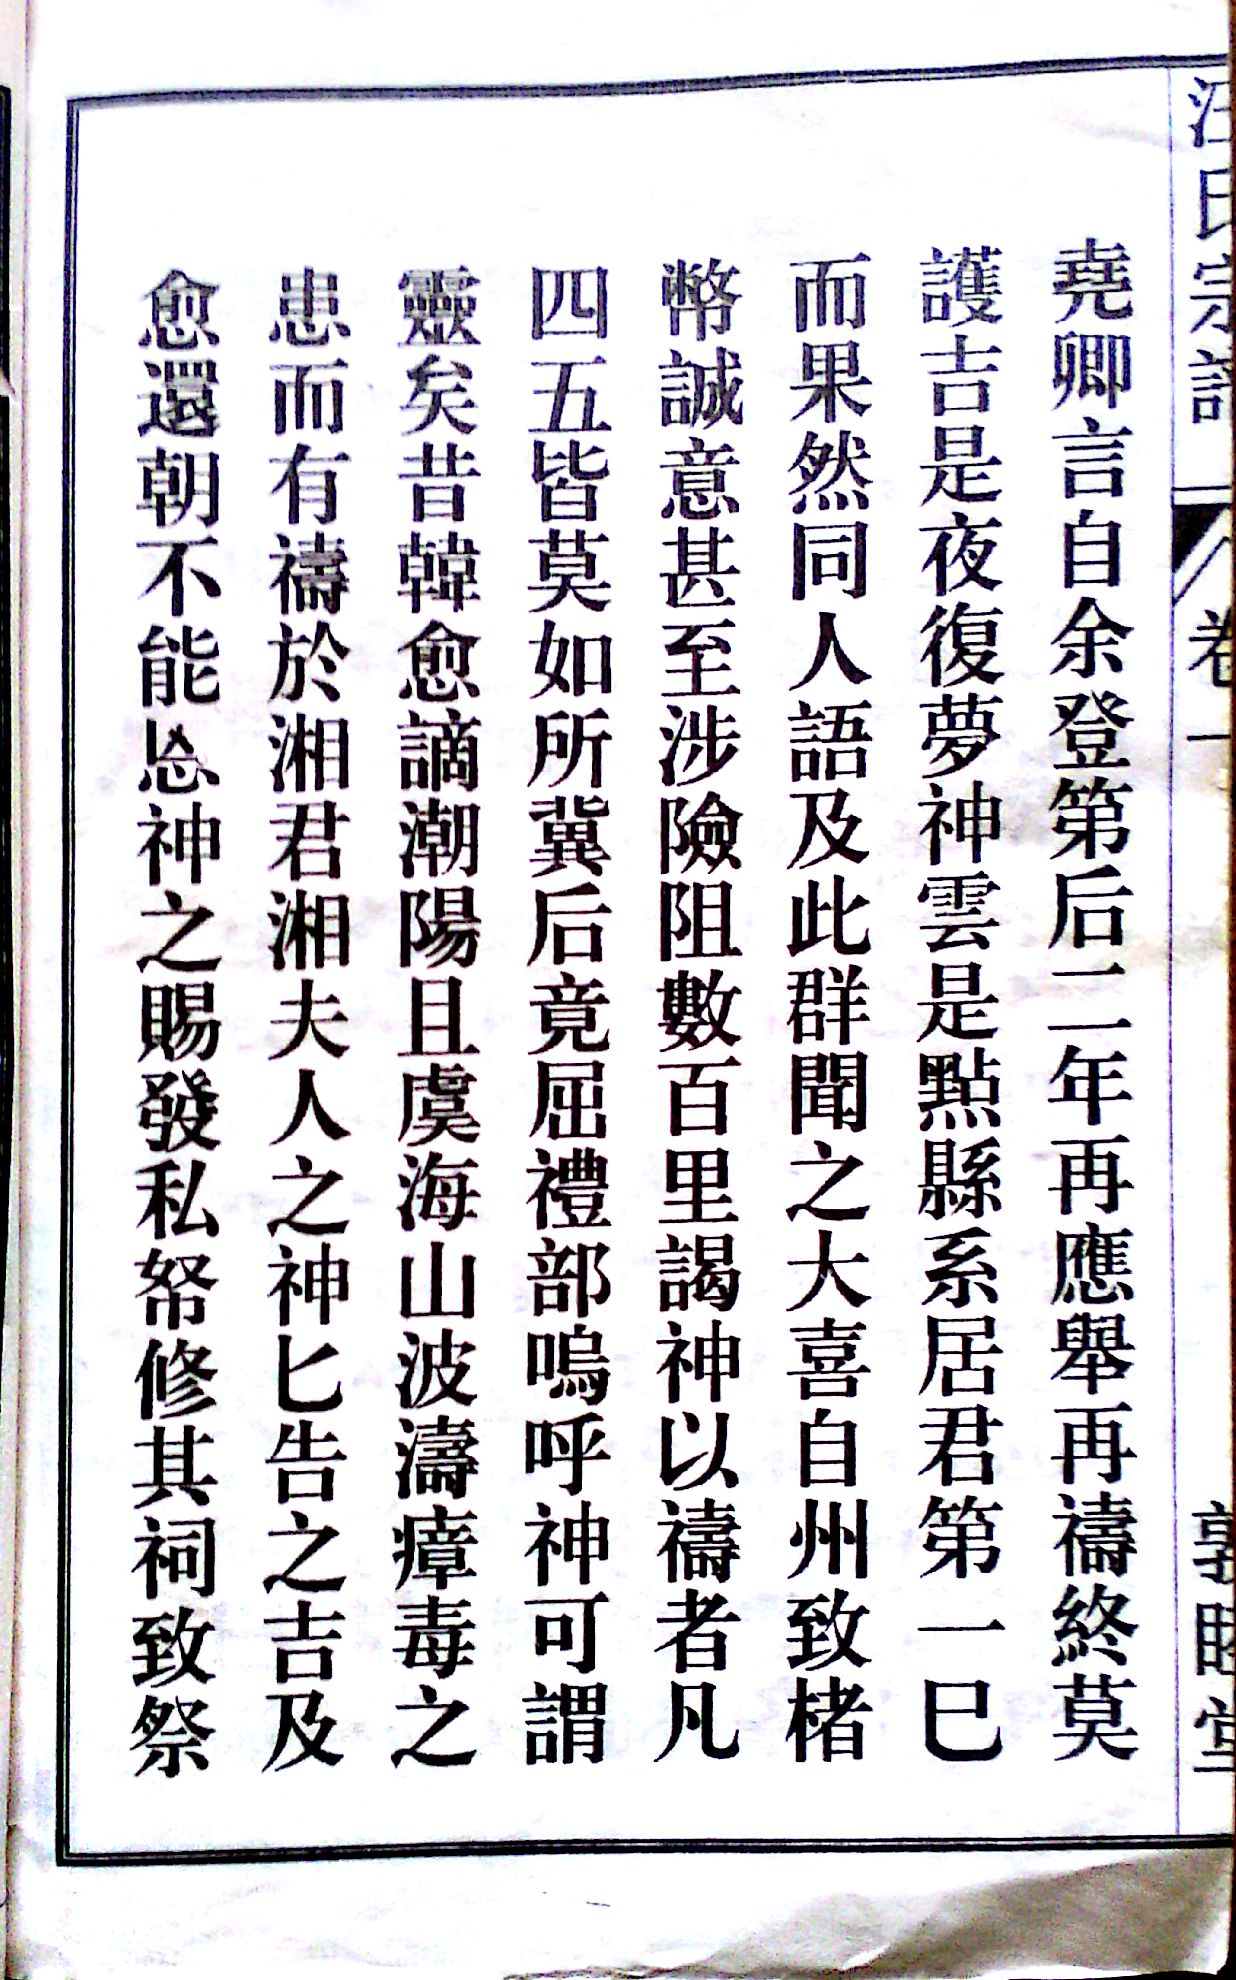 汪氏宗譜 卷一 敦睦堂
堯卿言自余登第后二年再應舉再禱終莫
護吉是夜復夢神雲是點縣系居君第一巳
而果然同人語及此群聞之大喜自州致楮
幣誠意甚至涉險阻數百里謁神以禱者凡
四五皆莫如所冀后竟屈禮部嗚呼神可謂
靈矣昔韓愈謫潮陽且虞海山波濤瘴毒之
患而有禱於湘君湘夫人之神匕告之吉及
愈還朝不能忘神之賜發私帑修其祠致祭